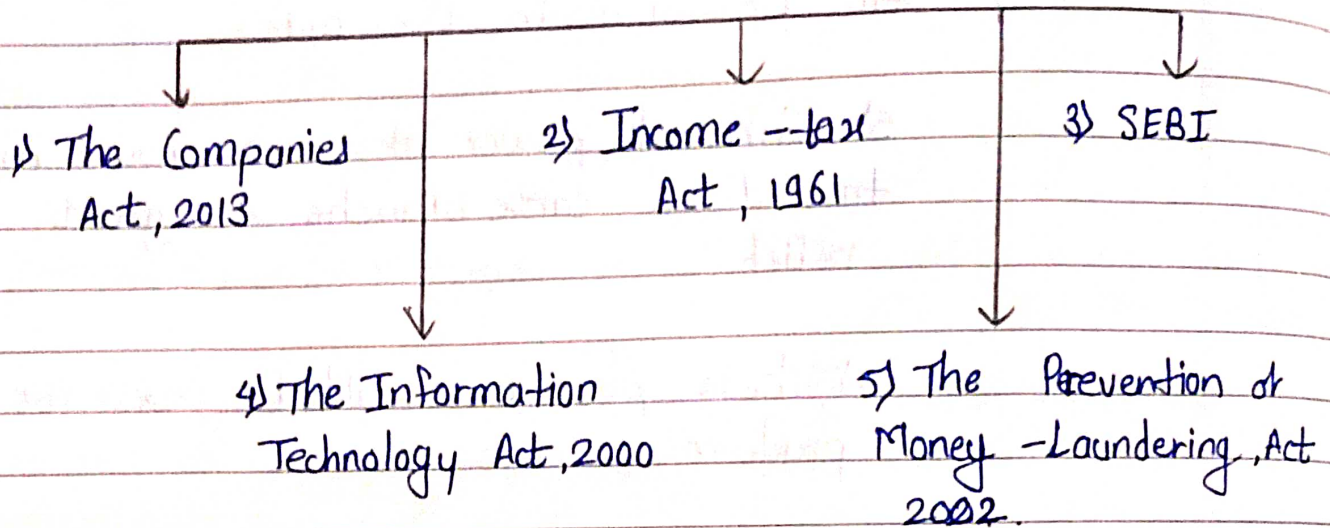 1) The Companies
Act, 2013
2) Income -tax
Act, 1961
3) SEBI
4) The Information
Technology Act, 2000
5) The Prevention of
Money -Laundering, Act
2002.